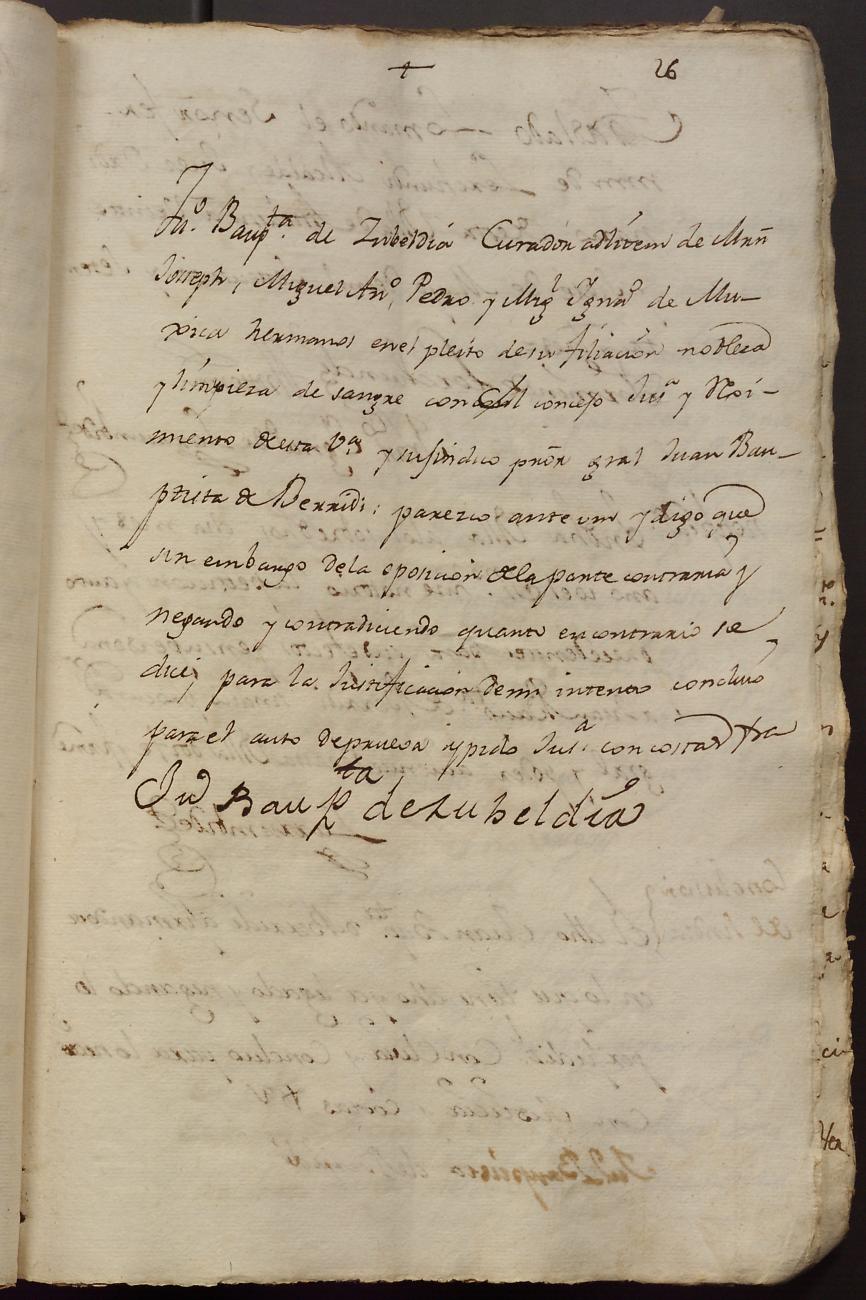 + 26
Ju.º Baupta. de Zubeldia Curador adlitem de Mrñ
Joseph, Miguel Anº, Pedro y Migl Ignaº de Mu-
xica hermanos en el pleito de su filiacion nobleza
y limpieza de sangre con el concejo Jusª y Rexi-
miento desta Vª, y su sindico prõr gral Juan Bau-
ptista de Berridi: parezco ante vm y digo, que
sin embargo de la oposicion de la parte contraria, y
negando y contradiciendo quanto en contrario se
dice, para la Justificacion de mi intento concluio
para el auto de prueva y pido Jusa. con costas
Juº Baupta de Zubeldia